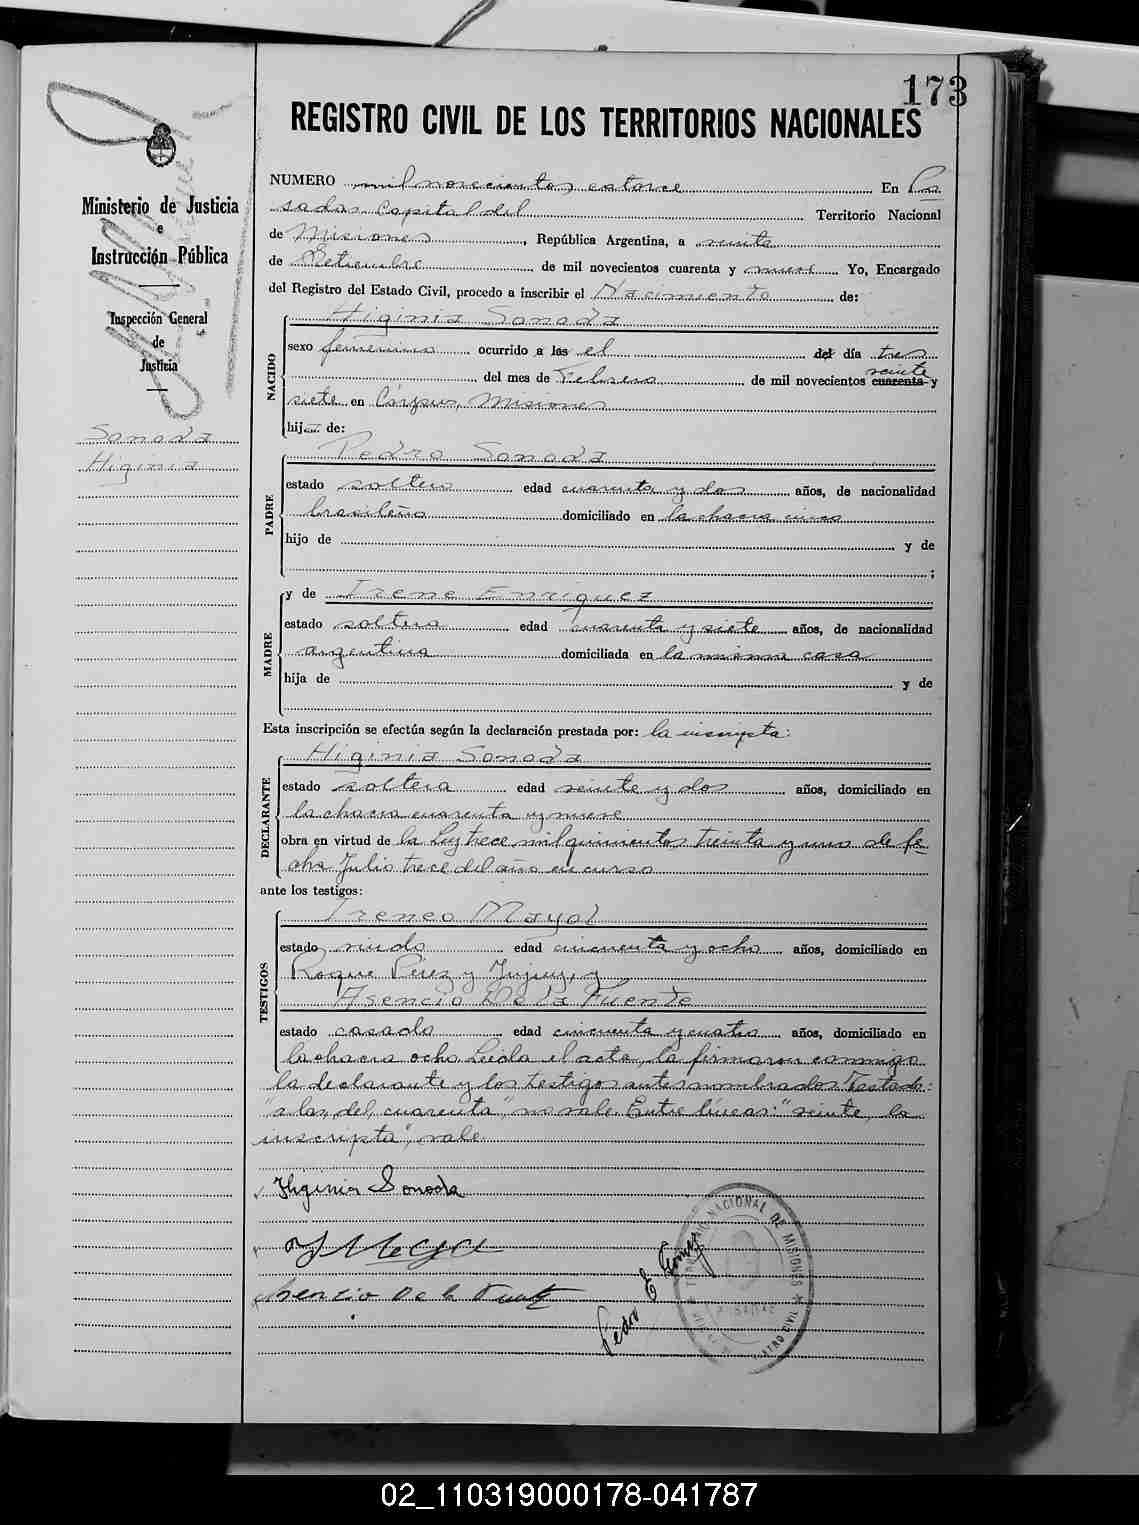 173
REGISTRO CIVIL DE LOS TERRITORIOS NACIONALES
Ministerio de Justicia
e
Instrucción Pública
Inspección General
de
Justicia
Sonoda
Higinia
NUMERO mil novecientos catorce En Po
sadas Capital del Territorio Nacional
de Misiones, República Argentina, a veinte
de Setiembre de mil novecientos cuarenta y nueve Yo, Encargado
del Registro del Estado Civil, procedo a inscribir el Nacimiento de:
NACIDO
Higinia Sonoda
sexo femenino ocurrido a las el del día tres
del mes de Febrero de mil novecientos cuarenta veinte y
siete en Corpus, Misiones
hija de:
PADRE
Pedro Sonoda
estado soltero edad cuarenta y dos años, de nacionalidad
brasileño domiciliado en la chacra cinco
hijo de y de
;
MADRE
y de Irene Enriquez
estado soltera edad cuarenta y siete años, de nacionalidad
argentina domiciliada en la misma casa
hija de y de
Esta inscripción se efectúa según la declaración prestada por: la inscripta:
DECLARANTE
Higinia Sonoda
estado soltera edad veinte y dos años, domiciliado en
la chacra cuarenta y nueve
obra en virtud de la Ley trece mil quinientos treinta y uno de fe-
cha Julio trece del año en curso
ante los testigos:
TESTIGOS
Ireneo Mayol
estado viudo edad cincuenta y ocho años, domiciliado en
Roque Perez y Jujuy, y
Asencio De la Fuente
estado casado edad cincuenta y cuatro años, domiciliado en
la chacra ocho. Leida el acta, la firmaron conmigo
la declarante y los testigos antes nombrados. Testado:
"a las, del, cuarenta", no vale. Entre líneas: "veinte, la
inscripta", vale.
Higinia Sonoda
Asencio De la Fuente
Pedro E Gomez
NACIONAL DE MISIONES
02_110319000178-041787